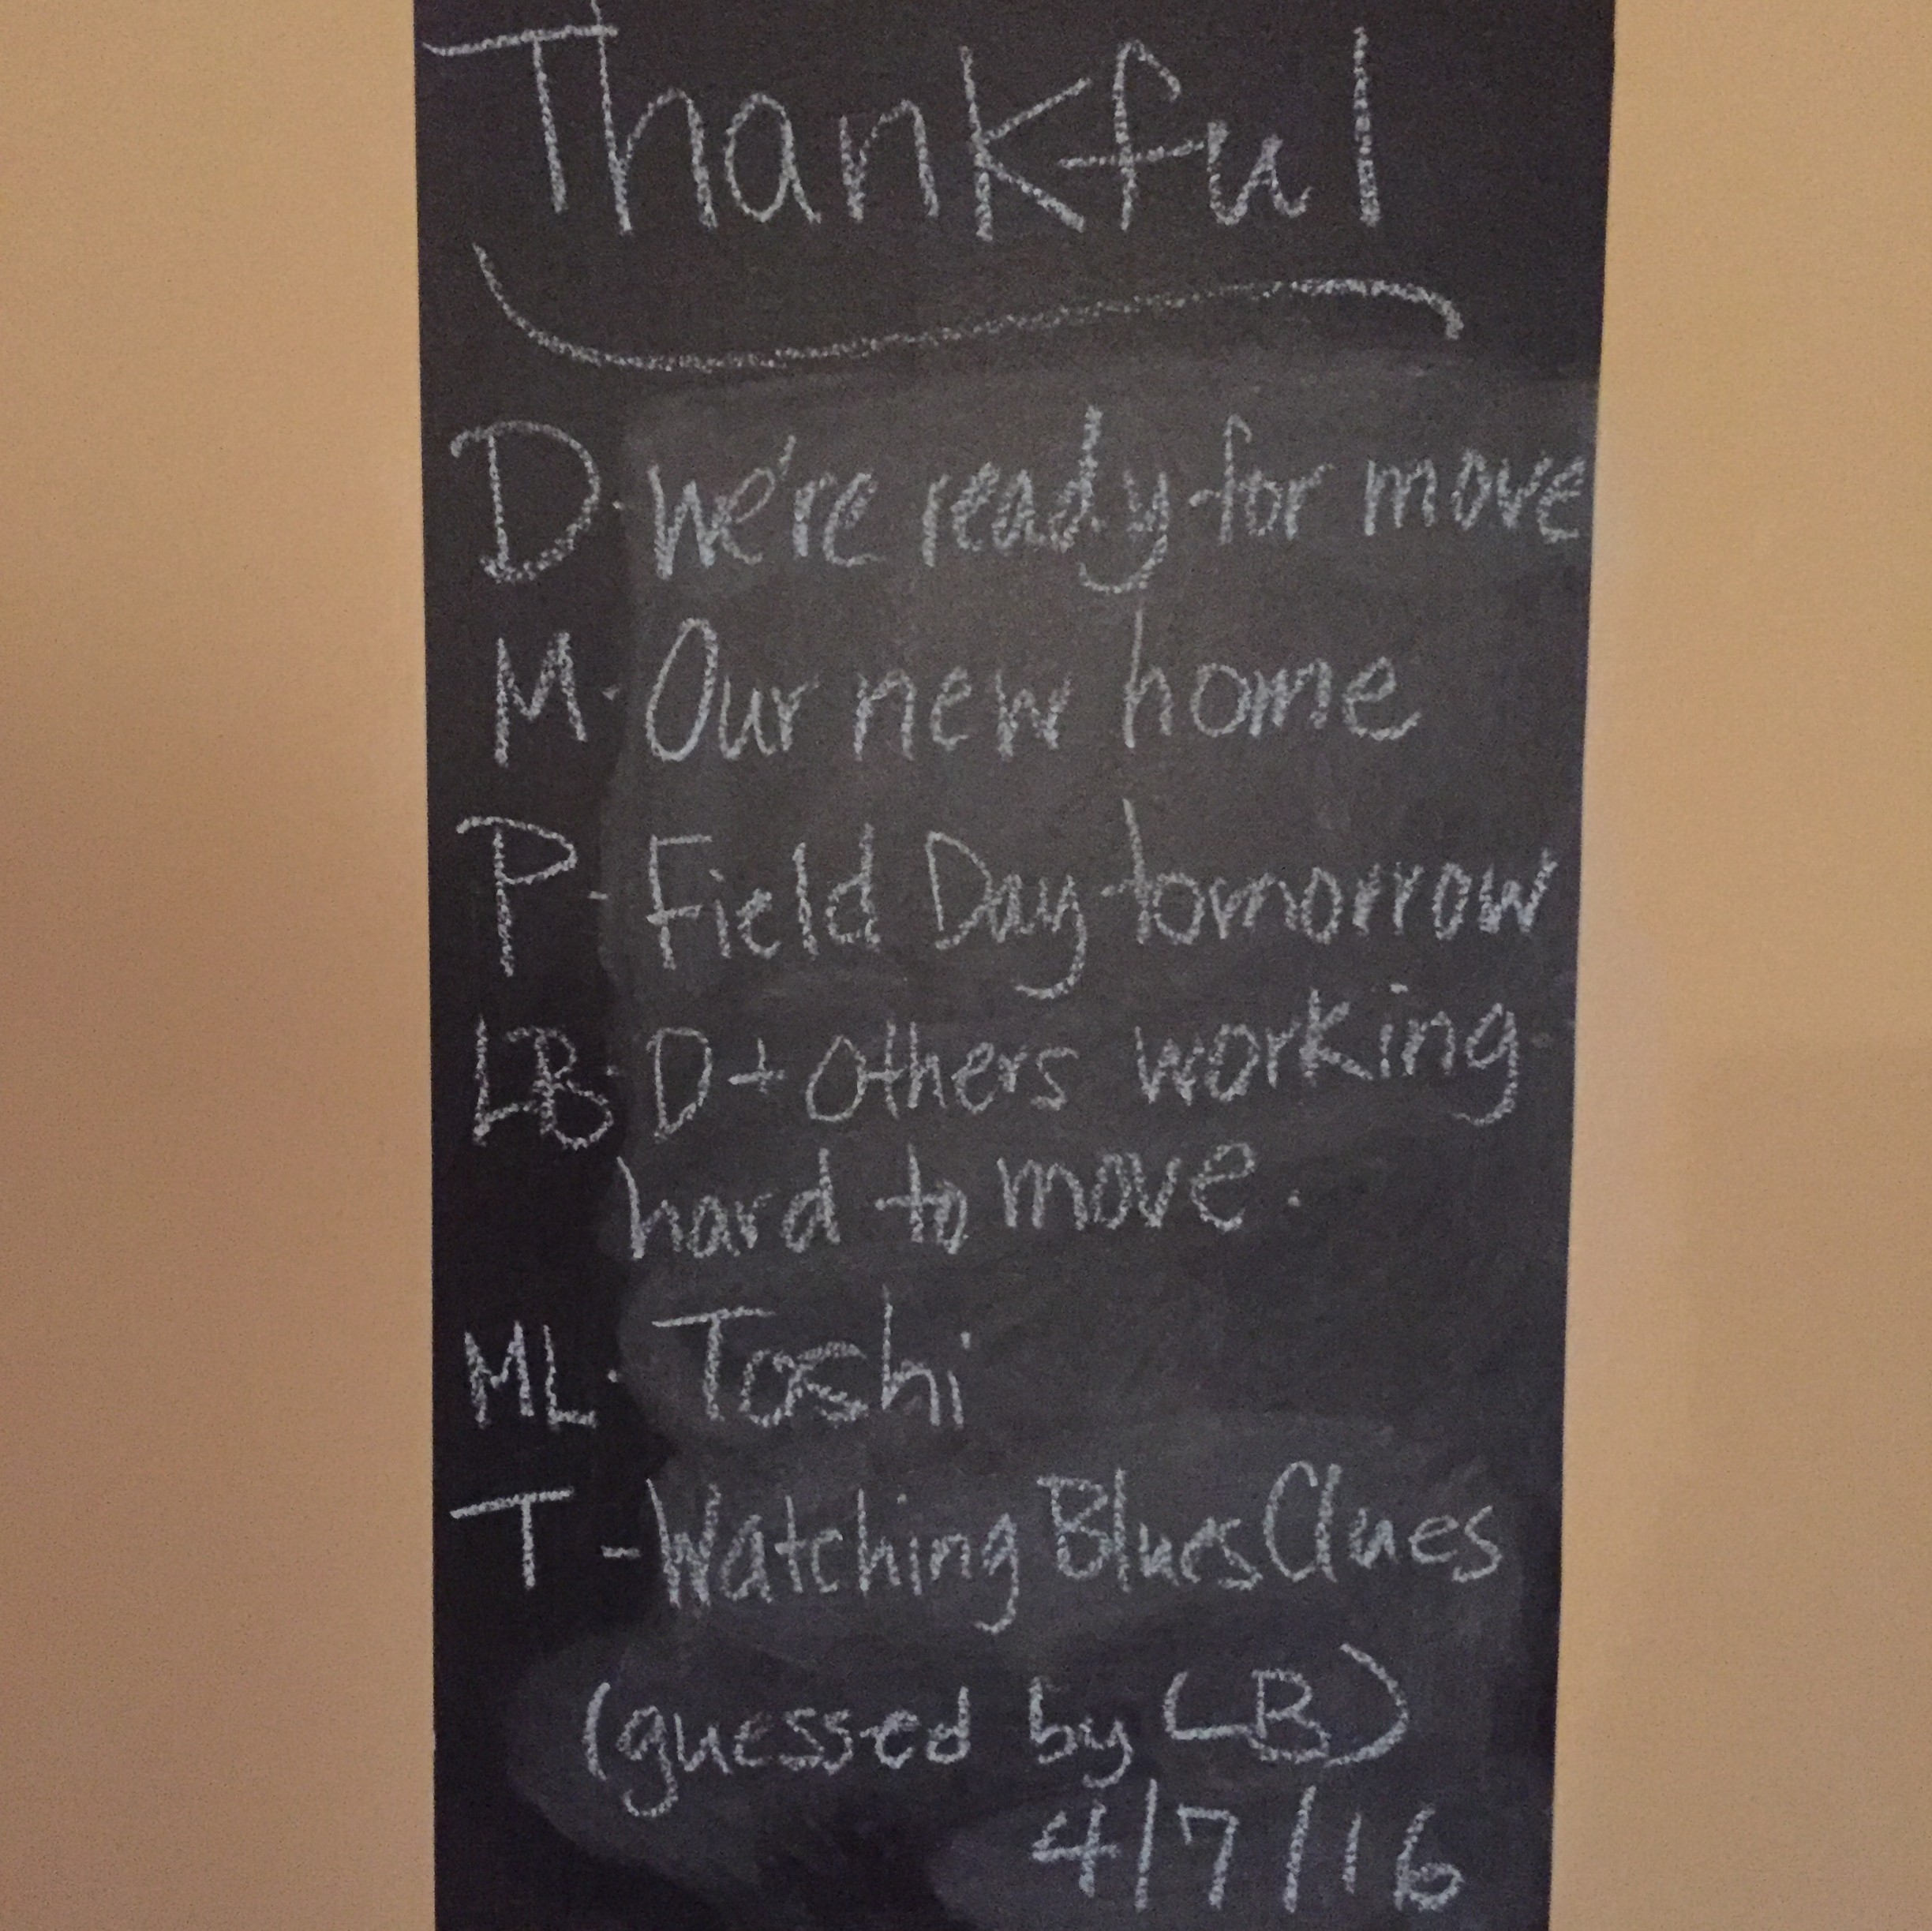 Thankful
D-we're ready for move
M-Our new home
P-Field Day tomorrow
LB-D+others working
hard to move.
ML-Toshi
T-Watching Blues Clues
(guessed by LB)
4/7/16